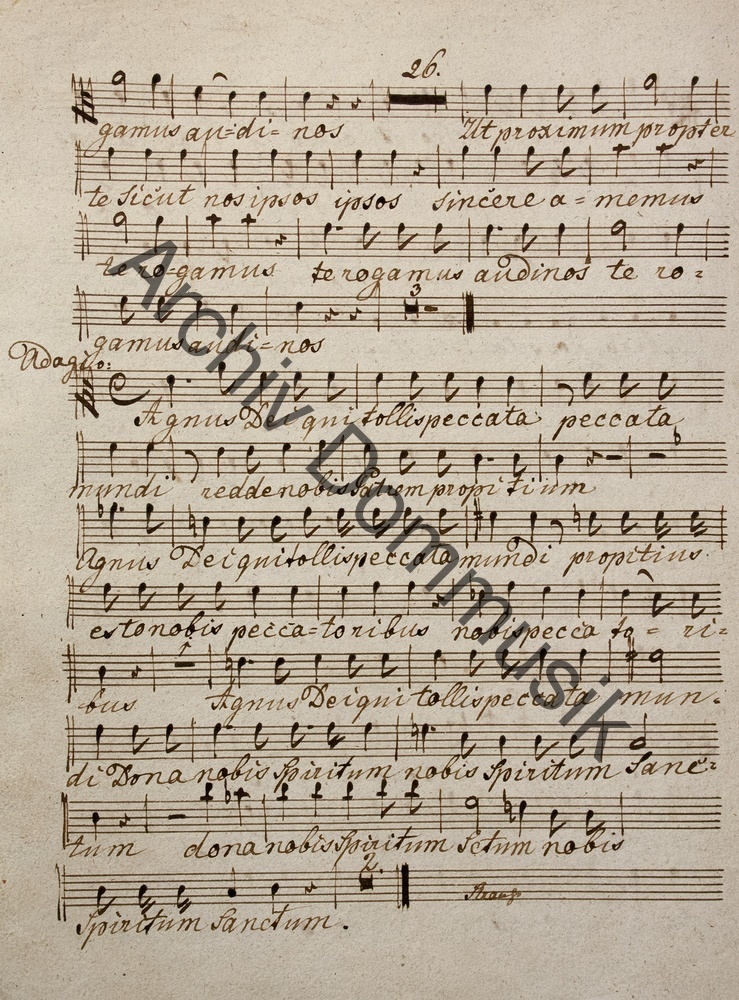 26.
gamus au=di= nos Ut proximum propter
te Sicut nos ipsos ipsos sincere a= memus
te ro-gamus te rogamus audi nos te ro=
3
gamus audi=nos
Adagio:
Agnus Dei qui tollis peccata peccata
mundi redde nobis Patrem propitium
Agnus Dei qui tollis peccata mundi propitius
esto nobis pecca=toribus nobis pecca to= ri=
1
bus Agnus Dei qui tollis peccata mun-
di Dona nobis Spiritum nobis Spiritum Sanc=
tum dona nobis Spiritum Sctum nobis
2.
Spiritum Sanctum.
Archiv Dommusik